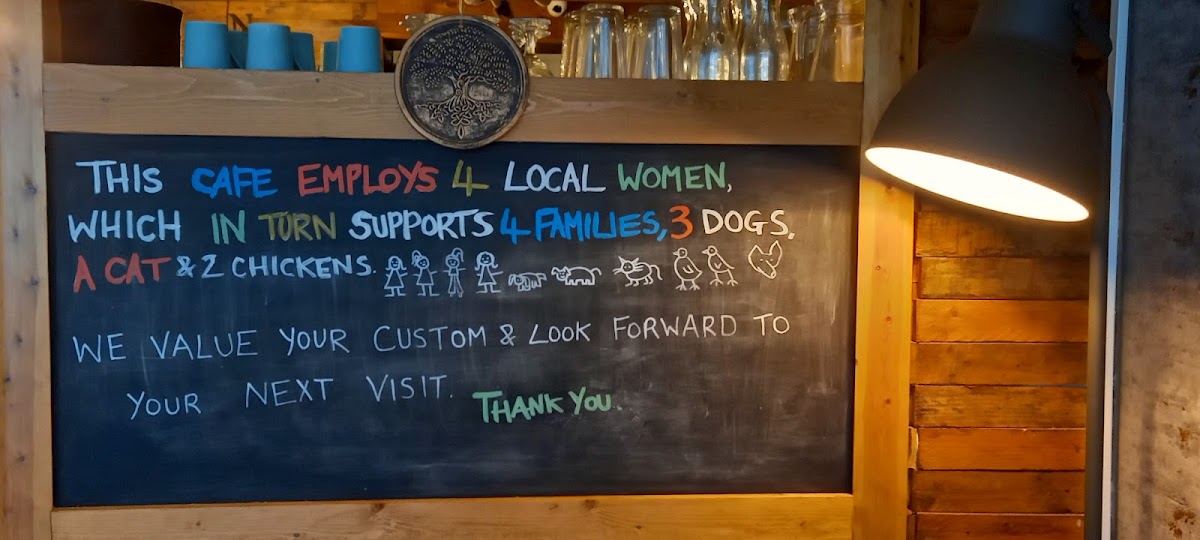 THIS CAFE EMPLOYS 4 LOCAL WOMEN,
WHICH IN TURN SUPPORTS 4 FAMILIES, 3 DOGS,
A CAT & 2 CHICKENS.
WE VALUE YOUR CUSTOM & LOOK FORWARD TO
YOUR NEXT VISIT. THANK YOU.